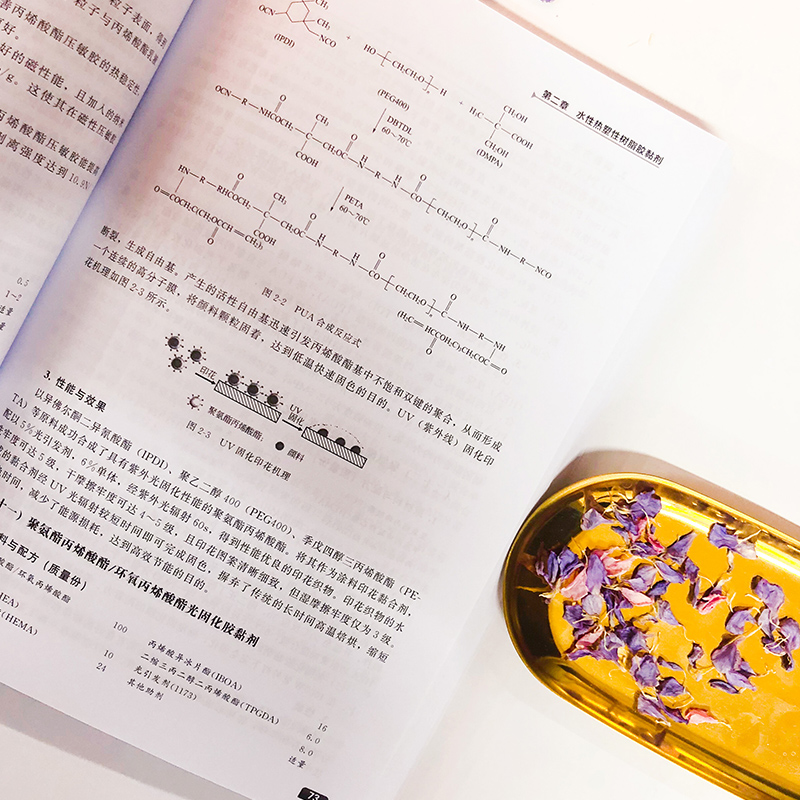 粒子表面,得到
粒子与丙烯酸酯乳
善丙烯酸酯压敏胶的热稳定性
更好。
好的磁性能,且加入的纳米
/g。这使其在磁性压敏胶
丙烯酸酯压敏胶能提高
剥离强度达到10.9N
0.5
1~2
适量
量
第二章 水性热塑性树脂胶黏剂
OCN
CH₃
CH₃
NCO
(IPDI)
+
HO—[CH₂CH₂O]ₙ—H
(PEG400)
+
H₃C
CH₂OH
COOH
CH₂OH
(DMPA)
DBTDL
60~70℃
OCN—R—NHCOCH₂
CH₃
COOH
CH₂OC—N—R—N—CO—[CH₂CH₂O]ₙ—C—NH—R—NCO
PETA
60~70℃
HN—R—RHCOCH₂
CH₃
COOH
CH₂OC—N—R—N—CO—[CH₂CH₂O]ₙ—C—NH—R—NH
O=COCH₂C(CH₂OCCH=CH₂)₃
(H₂C=HCCOH₂C)₃CH₂COC=O
图2-2 PUA合成反应式
断裂,生成自由基。产生的活性自由基迅速引发丙烯酸酯基中不饱和双键的聚合,从而形成
一个连续的高分子膜,将颜料颗粒固着,达到低温快速固色的目的。UV(紫外线)固化印
花机理如图2-3所示。
印花
UV
固化
聚氨酯丙烯酸酯;
颜料
图2-3 UV固化印花机理
3. 性能与效果
以异佛尔酮二异氰酸酯(IPDI)、聚乙二醇400(PEG400)、季戊四醇三丙烯酸酯(PE-
TA)等原料成功合成了具有紫外光固化性能的聚氨酯丙烯酸酯。将其作为涂料印花黏合剂,
配以5%光引发剂、6%单体,经紫外光辐射60s,得到性能优良的印花织物。印花织物的水
洗牢度可达5级,干摩擦牢度可达4~5级,且印花图案清晰细致,但湿摩擦牢度仅为3级。
的黏合剂经UV光辐射较短时间即可完成固色,摒弃了传统的长时间高温焙烘,缩短
时间,减少了能源损耗,达到高效节能的目的。
十一)聚氨酯丙烯酸酯/环氧丙烯酸酯光固化胶黏剂
料与配方(质量份)
酸酯/环氧丙烯酸酯
100
丙烯酸异冰片酯(IBOA)
16
HEA)
10
二缩三丙二醇二丙烯酸酯(TPGDA)
6.0
(HEMA)
24
光引发剂(1173)
8.0
其他助剂
适量
73